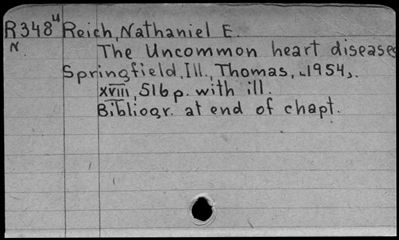 R348u Reich, Nathaniel E.
N. The Uncommon heart diseases
Springfield, Ill., Thomas, [1954].
xviii, 516 p. with ill.
Bibliogr. at end of chapt.